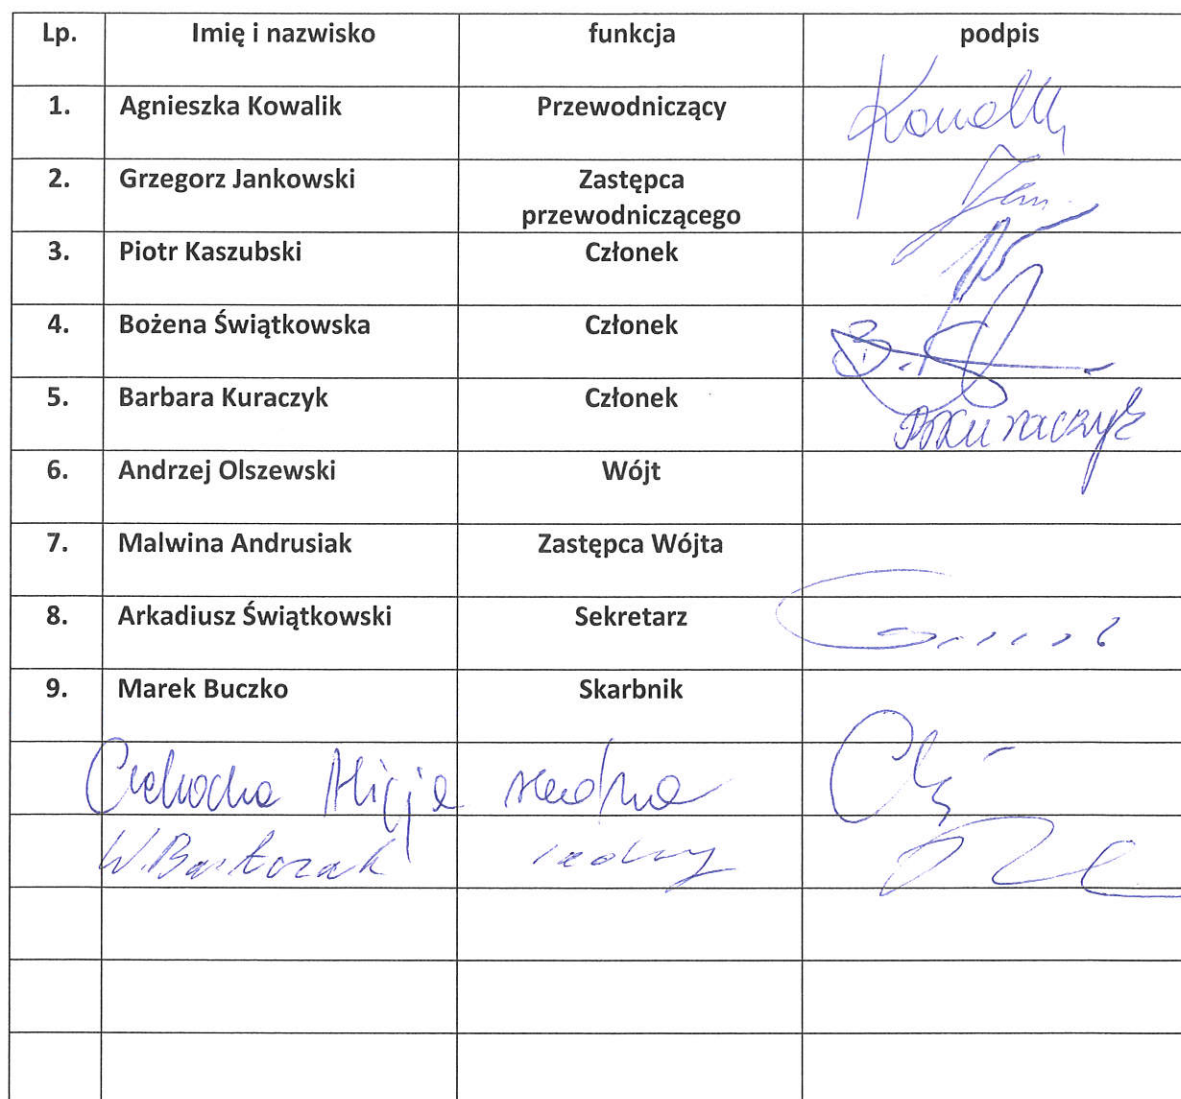 Lp. Imię i nazwisko funkcja podpis
1. Agnieszka Kowalik Przewodniczący Kowalik
2. Grzegorz Jankowski Zastępca
przewodniczącego
3. Piotr Kaszubski Członek
4. Bożena Świątkowska Członek
5. Barbara Kuraczyk Członek BKuraczyk
6. Andrzej Olszewski Wójt
7. Malwina Andrusiak Zastępca Wójta
8. Arkadiusz Świątkowski Sekretarz
9. Marek Buczko Skarbnik
Cichocka Alicja radna
W. Bartczak radny